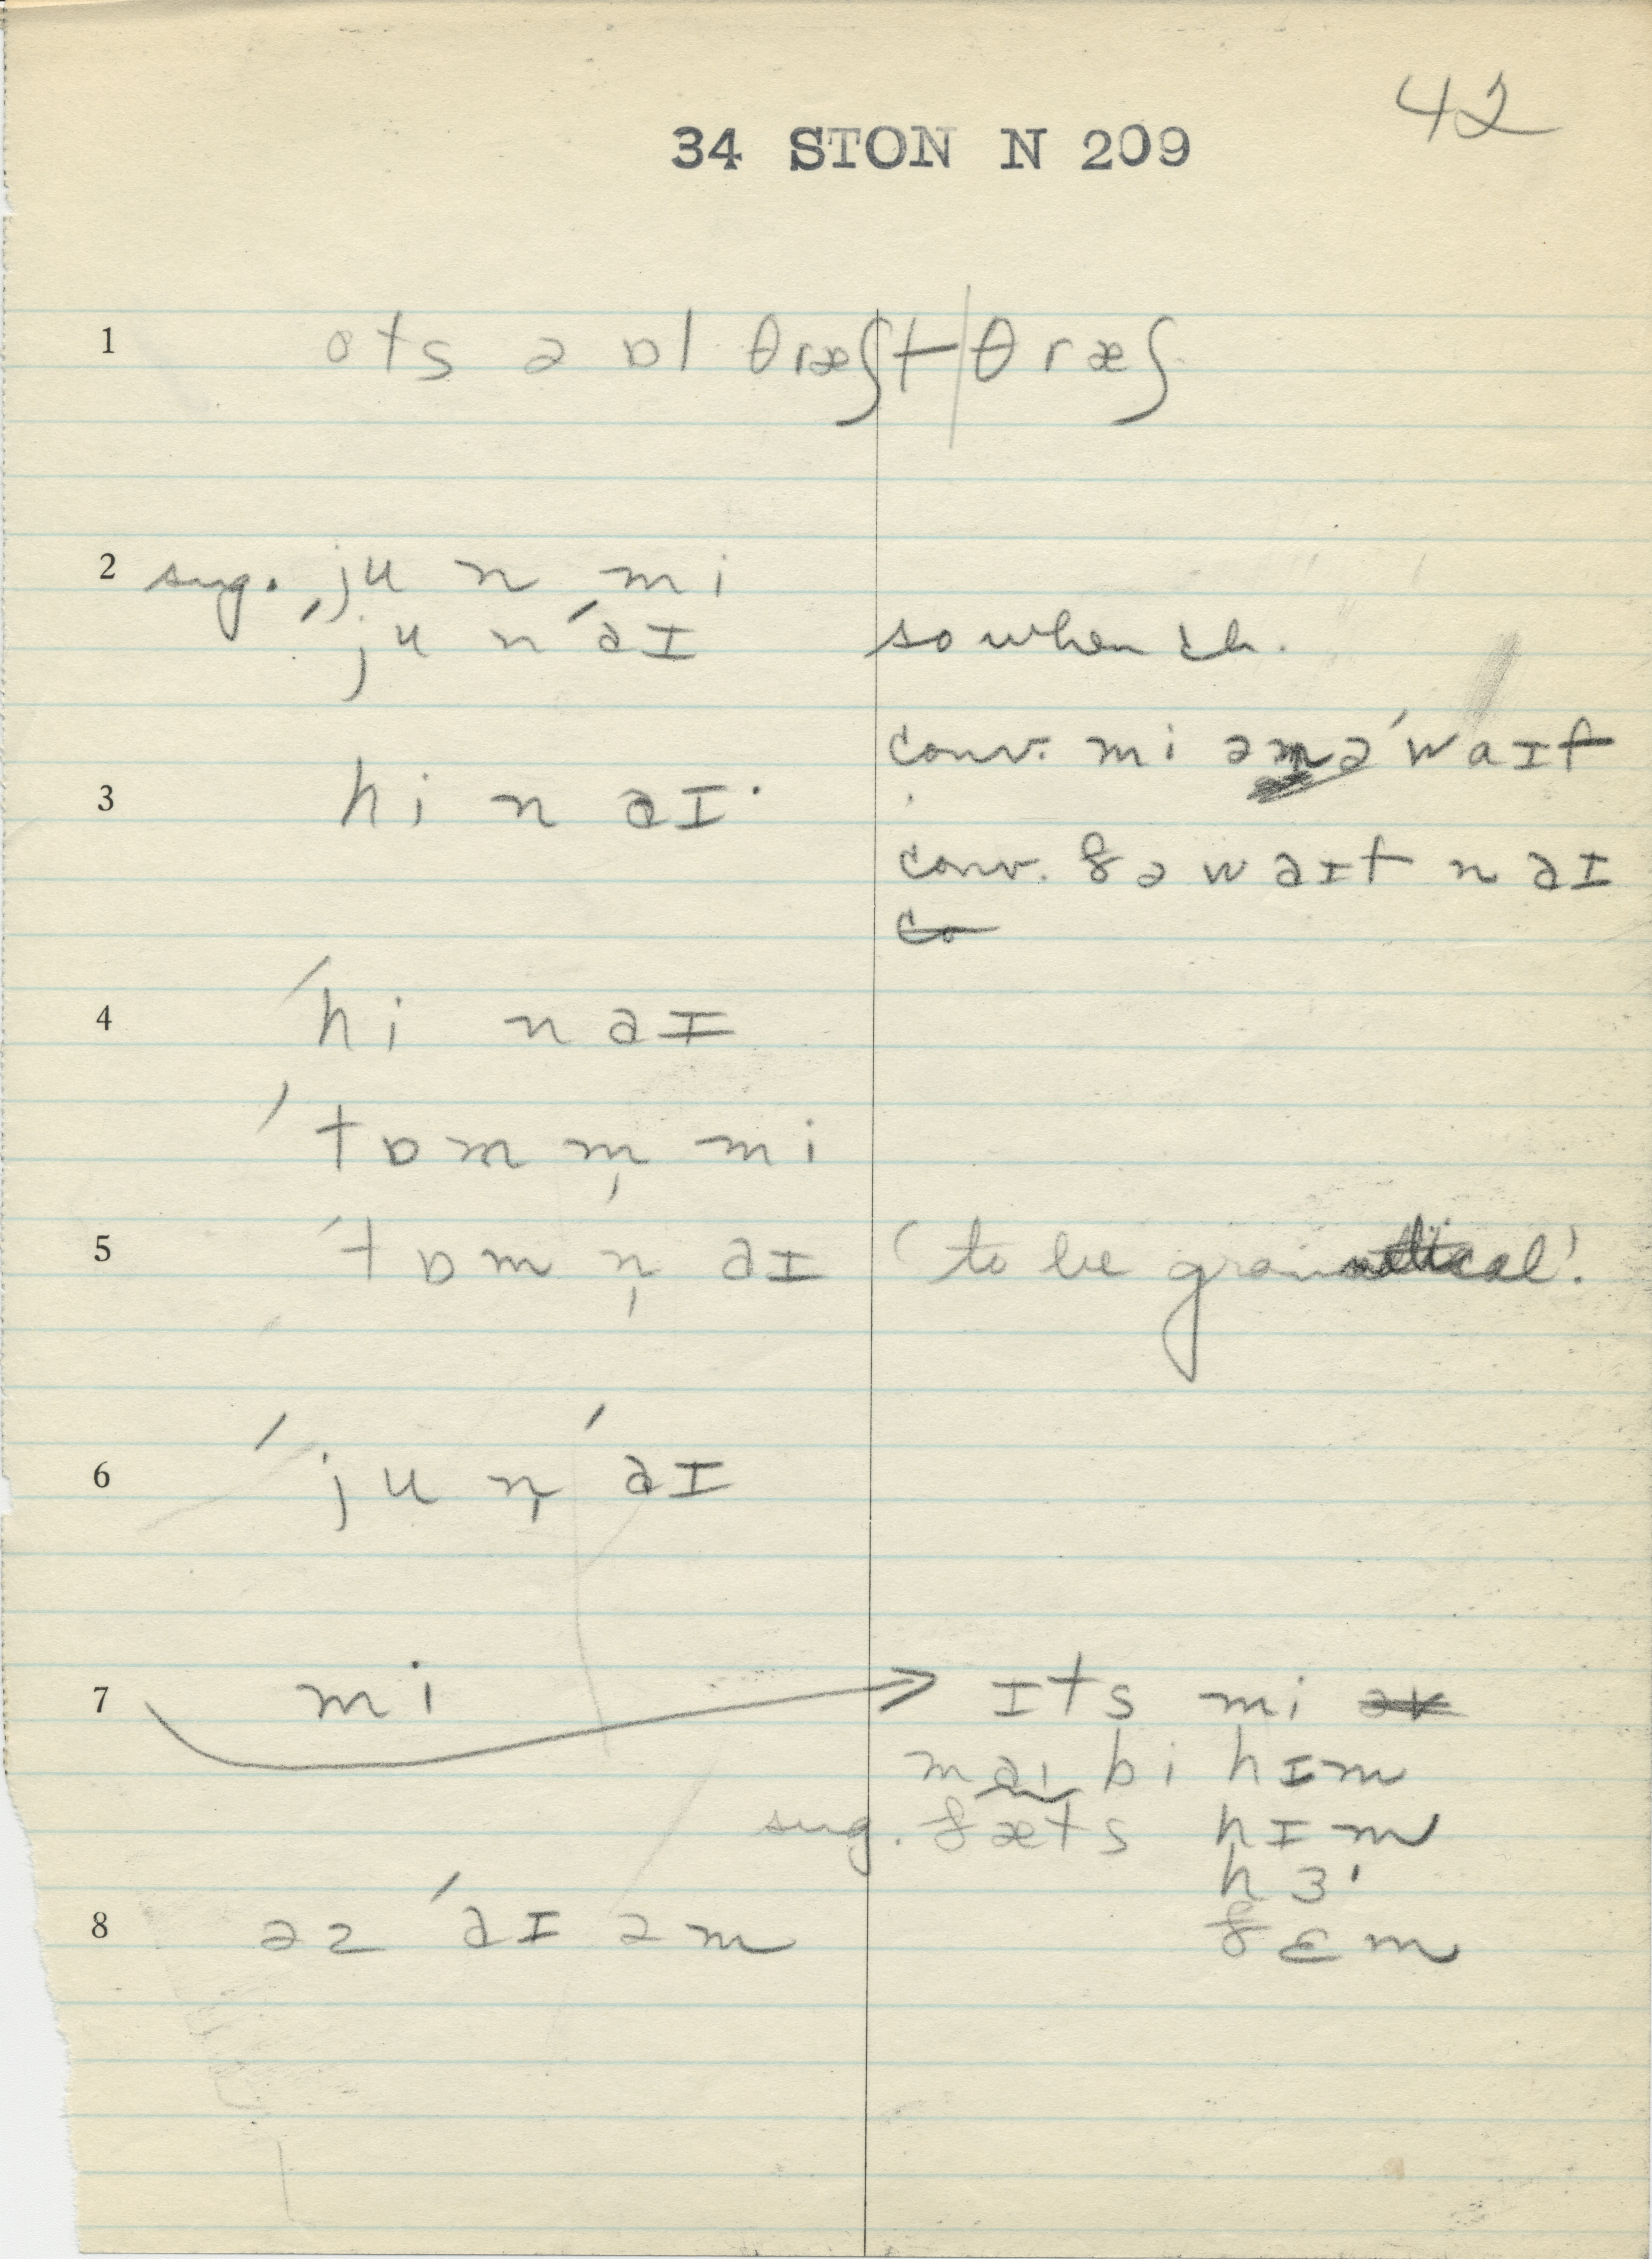 42
34 STON N 209
1 ots ə ɒl θræʃt | θræʃ
2 sug. ju n mi
ˈju n ˈaɪ so when ch.
conv. mi ən ə ˈwaɪf
3 hi n aɪ·
conv. ðə waɪf n aɪ
4 ˈhi n aɪ
ˈtɒm m̩ mi
5 ˈtɒm n̩ aɪ (to be gramatical!
6 ˈju n̩ ˈaɪ
7 mi → ɪts mi
maɪ bi hɪm
sug. ðæts hɪm
hɜ˞
8 əz ˈaɪ əm ðɛm